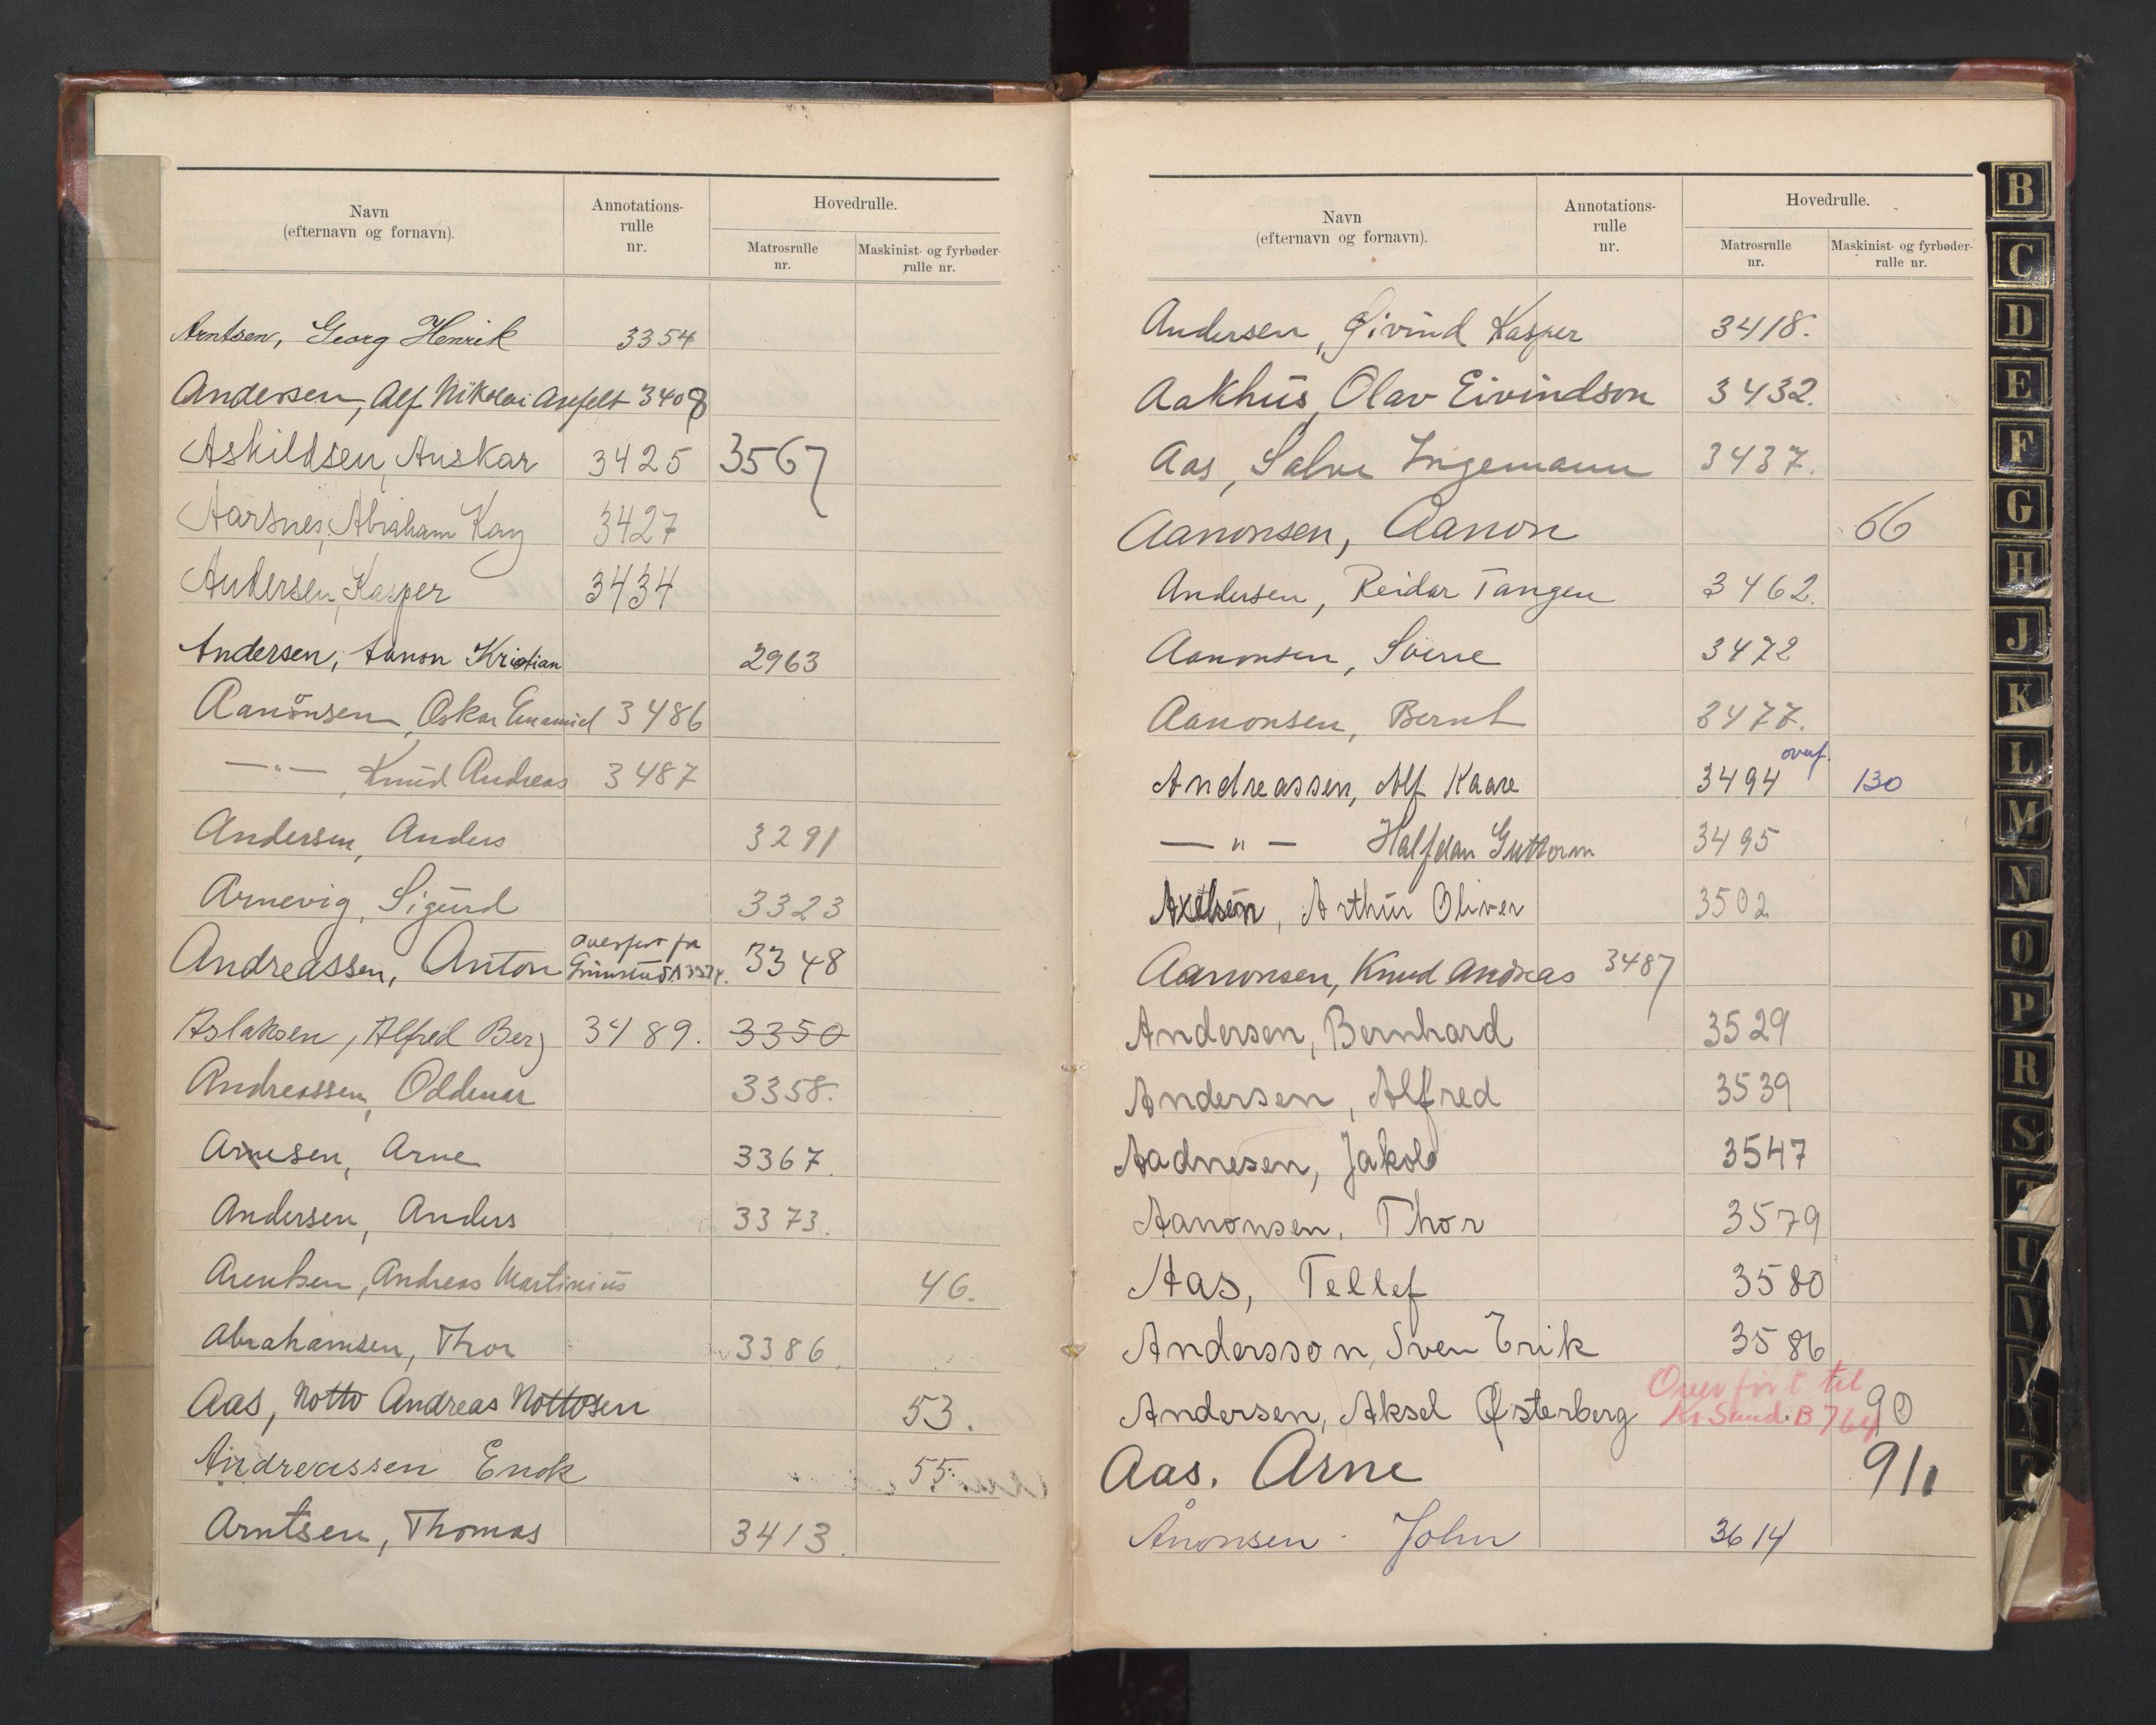 Navn (efternavn og fornavn). Annotations-rulle nr. Hovedrulle. Matrosrulle nr. Maskinist- og fyrbøder-rulle nr.
Arntsen, Georg Henrik 3354
Andersen, Alf Nikolai Arefelt 3408
Askildsen, Anskar 3425 3567
Aarsnes, Abraham Kay 3427
Andersen, Kasper 3434
Andersen, Aanon Kristian 2963
Aanonsen, Oskar Emanuel 3486
—"— , Knud Andreas 3487
Andersen, Anders 3291
Arnevig, Sigurd 3323
Andreassen, Anton overført fra Grimstad 3348
Aslaksen, Alfred Berg 3489. 3350
Andreassen, Oddmar 3358.
Arnesen, Arne 3367.
Andersen, Anders 3373.
Arentsen, Andreas Martinius 46.
Abrahamsen, Thor 3386.
Aas, Notto Andreas Nottosen 53.
Andreassen Enok 55.
Arntsen, Thomas 3413.
Navn (efternavn og fornavn). Annotations-rulle nr. Hovedrulle. Matrosrulle nr. Maskinist- og fyrbøder-rulle nr.
Andersen, Øivind Kasper 3418.
Aakhus, Olav Eivindson 3432.
Aas, Salve Ingemann 3437.
Aanonsen, Aanon 66
Andersen, Reidar Tangen 3462.
Aanonsen, Sverre 3472
Aanonsen, Bernt 3477.
Andreassen, Alf Kaare 3494 overf. 130
— " — Halfdan Guttorm 3495
Axelsen, Arthur Oliver 3502
Aanonsen, Knud Andreas 3487
Andersen, Bernhard 3529
Andersen, Alfred 3539
Aadnesen, Jakob 3547
Aanonsen, Thor 3579
Aas, Tellef 3580
Andersson, Sven Erik 3586
Andersen, Aksel Østerberg Overført til Kr. Sand. B 764 90
Aas. Arne 911
Ånonsen. John 3614
B
C
D
E
F
G
H
J
K
L
M
N
O
P
R
S
T
U
V